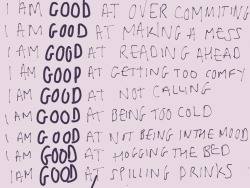 I AM GOOD AT OVER COMMITING
I AM GOOD AT MAKING A MESS
I AM GOOD AT READING AHEAD
I AM GOOD AT GETTING TOO COMFY
I AM GOOD AT NOT CALLING
I AM GOOD AT BEING TOO COLD
I AM GOOD AT NOT BEING IN THE MOOD
I AM GOOD AT HOGGING THE BED
I AM GOOD AT SPILLING DRINKS